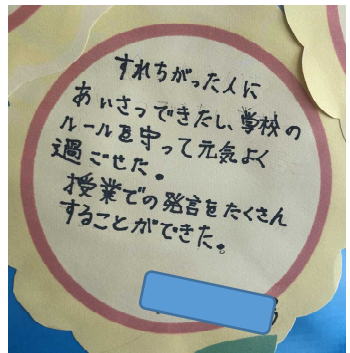 すれちがった人に
あいさつできたし、学校の
ルールを守って元気よく
過ごせた。
授業での発言をたくさん
することができた。